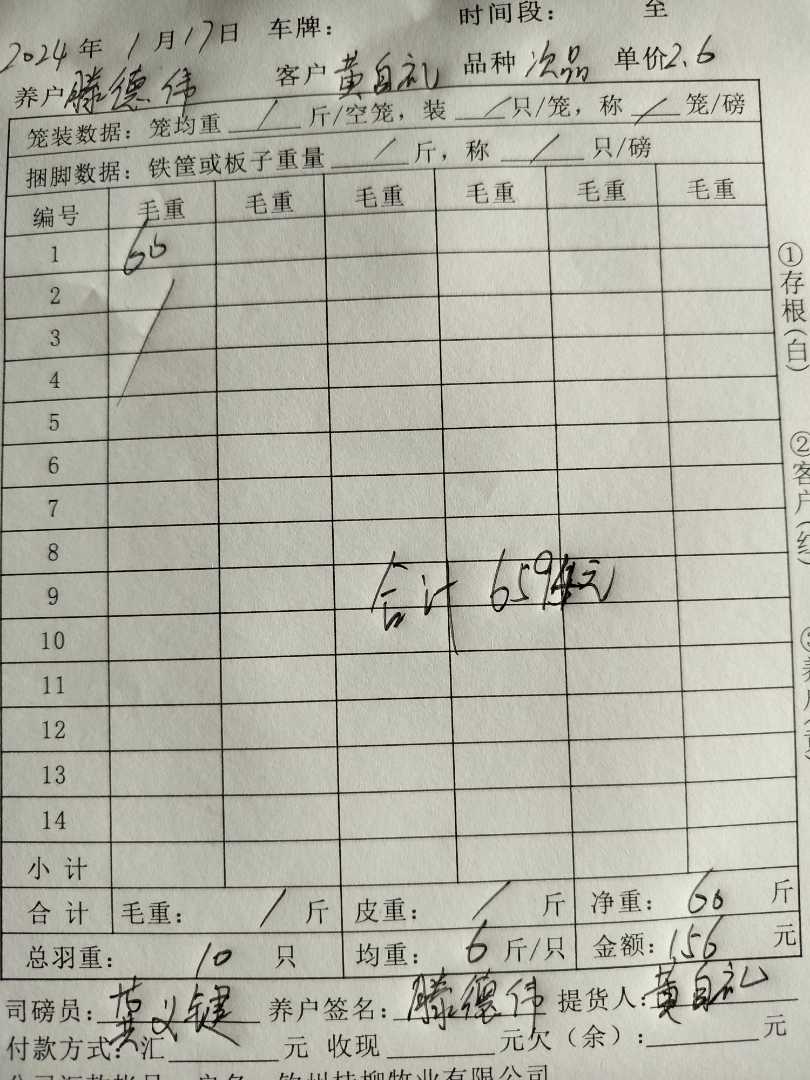 时间段： 至
2024年1月17日 车牌：
养户滕德伟 客户黄自礼 品种次品 单价2.6
笼装数据：笼均重 / 斤/空笼，装 / 只/笼，称 / 笼/磅
捆脚数据：铁筐或板子重量 / 斤，称 / 只/磅
编号 毛重 毛重 毛重 毛重 毛重 毛重
1 60
2
3
4
5
6
7
8
9
合计 659元
10
11
12
13
14
小计
合计 毛重： / 斤 皮重： / 斤 净重：60 斤
总羽重： 10 只 均重：6 斤/只 金额：156 元
司磅员：黄义键 养户签名：滕德伟 提货人：黄自礼
付款方式：汇 元 收现 元欠（余）： 元
①存根(白)
②客户(红)